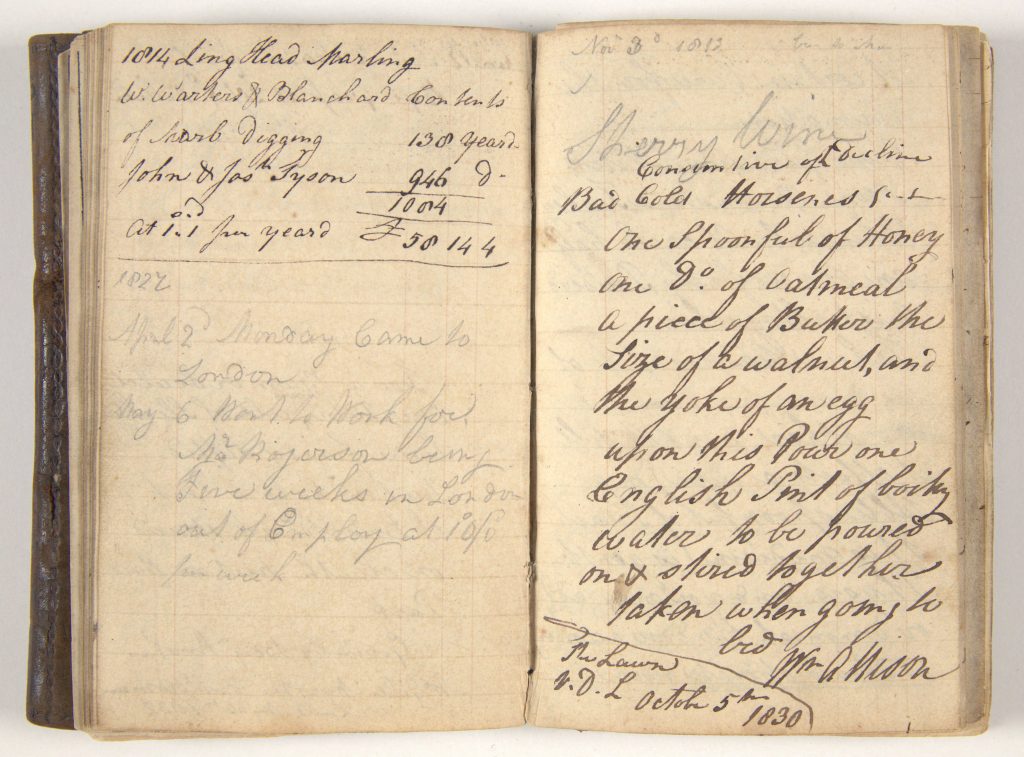 1814 Ling Head Marling
W. Warters & Blanchard Contents
of Marb Digging 138 yeard
John & Jos.h Tyson 946 d.
1084
At 1s.1d per yeard £ 58 14 4
1822
April 2d Monday Came to
London
May 6 Went to Work for
Mr Rogerson being
Five weeks in London
out of Employ at
per week
Nov 3d 1812
Sherry Wine
Consumtive of Decline
Bad Cold Horsenes
one Spoonful of Honey
one Do. of Oatmeal
a piece of Butter the
Size of a walnut, and
the yoke of an egg
upon this Pour one
English Pint of boiling
water to be poured
on & stired together
taken when going to
bed
Wm Allison
The Lawn
V.D.L October 5th
1830